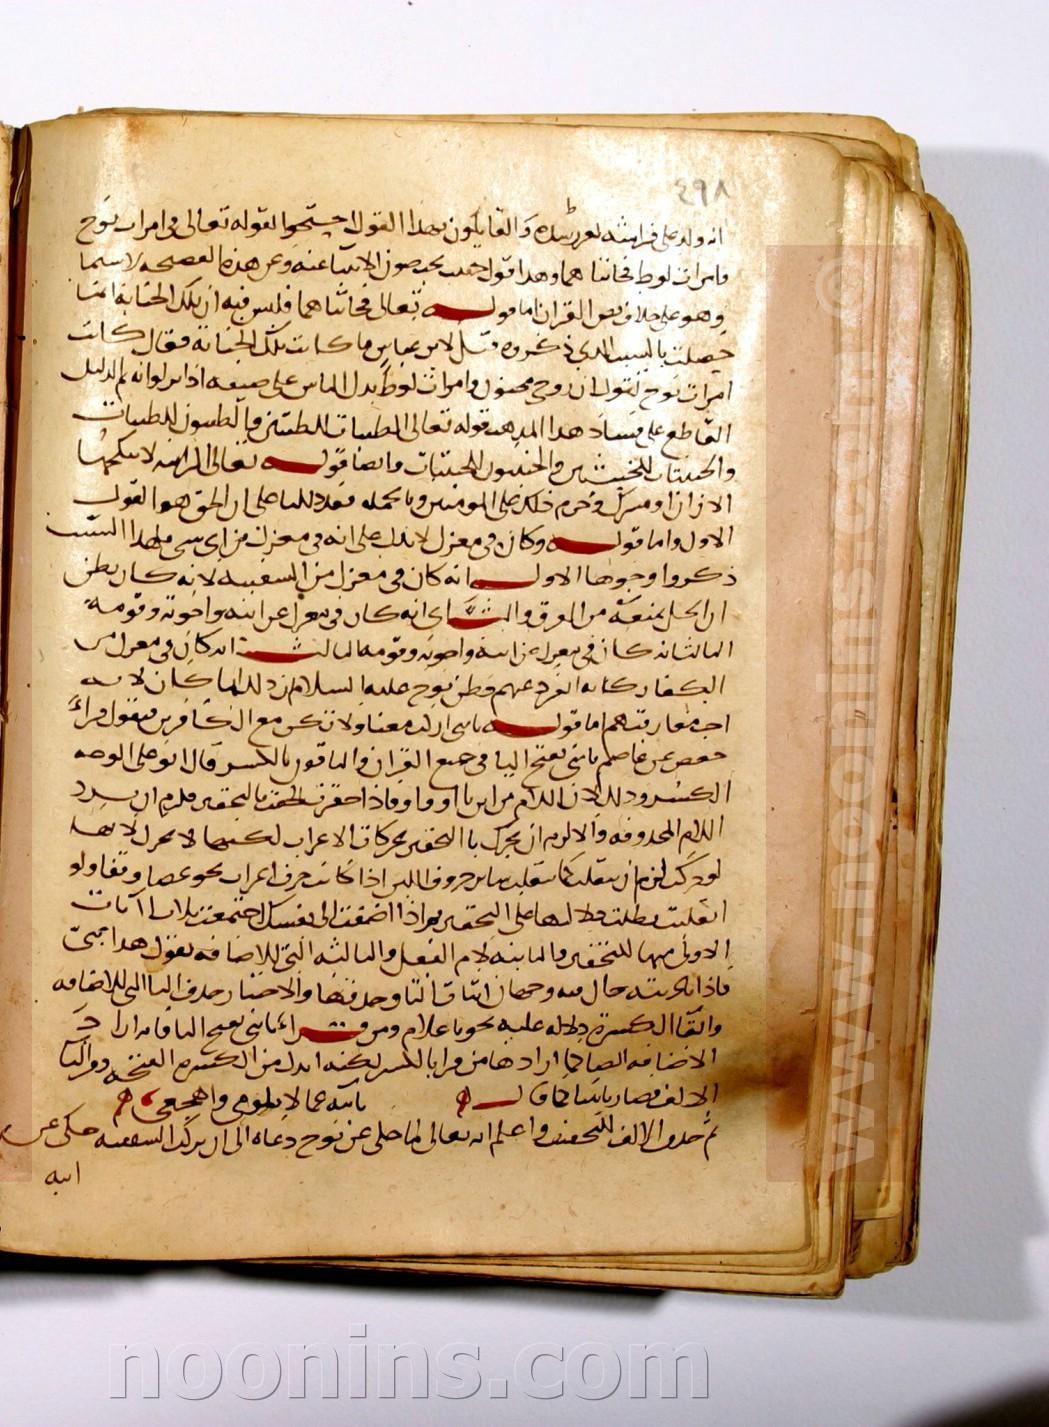 ٤٩٨
انه ولد على فراشه لغير رشده والقايلون بهذا القول احتجوا بقوله تعالى في امرات نوح
وامرات لوط فخانتاهما وهذا قول خبيث يجب صون الانبيا عنه وعن هذه الفضيحه لا سيما
وهو على خلاف نص القران اما قوله تعالى فخانتاهما فليس فيه ان تلك الخيانة انما
حصلت بالسبب الذي ذكروه قيل لابن عباس ما كانت تلك الخيانة فقال كانت
امرات نوح تقول ان زوجي مجنون وامرات لوط تدل الناس على ضيفه اذا نزلوا به ثم الدليل
القاطع على فساد هذا المذهب قوله تعالى الطيبات للطيبين والطيبون للطيبات
والخبيثات للخبيثين والخبيثون للخبيثات وايضا قوله تعالى الزانيه لا ينكحها
الا زان او مشرك وحرم ذلك على المومنين وبالجمله فقد دللنا على ان الحق هو القول
الاول واما قوله وكان في معزل لا يدل على انه في معزل من اي شي فلهذا السبب
ذكروا وجوها الاول انه كان في معزل من السفينه لانه كان يظن
ان الجبل يمنعه من الغرق والثاني انه كان في معزل عن ابيه واخوته وقومه
الثالث انه كان في معزل عن ابيه واخوته وقومه الثالث انه كان في معزل من
الكفار كانه انفرد عنهم فظن نوح عليه السلام ان ذلك انما كان لانه
احب مفارقتهم اما قوله يا بني اركب معنا ولا تكن مع الكافرين فنقول قرأ
حفص عن عاصم يا بني بفتح اليا في جميع القران والباقون بالكسر قال ابو علي الوجه
الكسر وذلك لان اللام من ابن يا او واو فاذا حقرت الحقت يا التحقير فلزم ان ترد
اللام المحذوفه والا لزم ان تحرك يا التحقير بحركات الاعراب لكنها لا تحرك لانها
لو حركت لزم ان تنقلب كما تنقلب ساير حروف اللين اذا كانت حرف اعراب نحو عصا وقفا ولو
انقلبت بطلت دلالتها على التحقير ثم اذا اضفت الى نفسك اجتمعت ثلاث ياات
الاولى منها للتحقير والثانيه لام الفعل والثالثه التي للاضافه تقول هذا بني
فاذا ناديته جاز فيه وجهان اثبات اليا وحذفها والاختيار حذف اليا التي للاضافه
وابقا الكسرة دلاله عليه نحو يا غلام ومن قرأ يا بني بفتح اليا فانه اراد
الاضافه ايضا كما ارادها من قرا بالكسر لكنه ابدل من الكسره الفتحه ومن اليا
الالف فصار يا بنيا كما قال يا ابنة عما لا تلومي واهجعي
ثم حذف الالف للتخفيف واعلم انه تعالى لما حكى عن نوح دعاه الى ان يركب السفينه حكى عن
ابنه